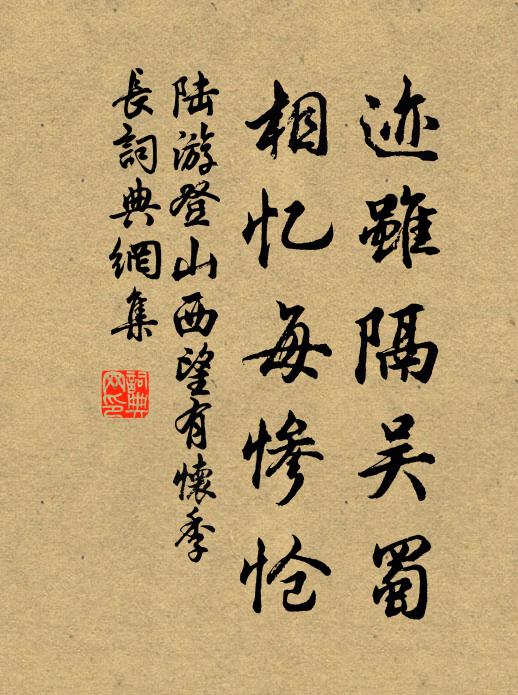 迹雖隔吴蜀
相忆每惨怆
陆游登山西望有懷季
長詞典網集
詞典
网印